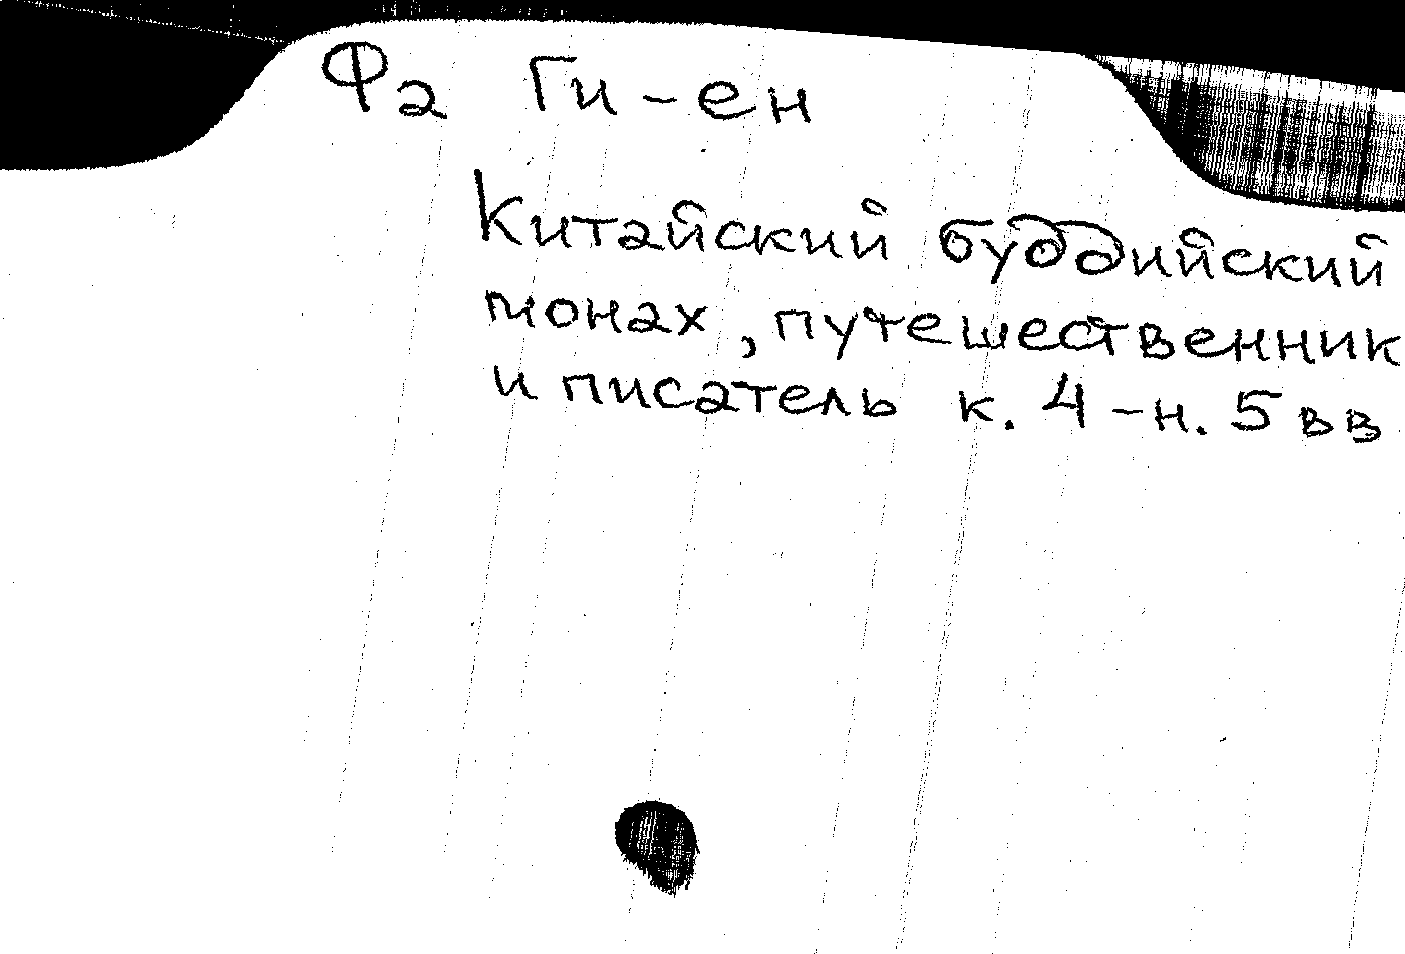 Фа Ги-ен
Китайский буддийский
монах, путешественник
и писатель к. 4-н. 5 вв